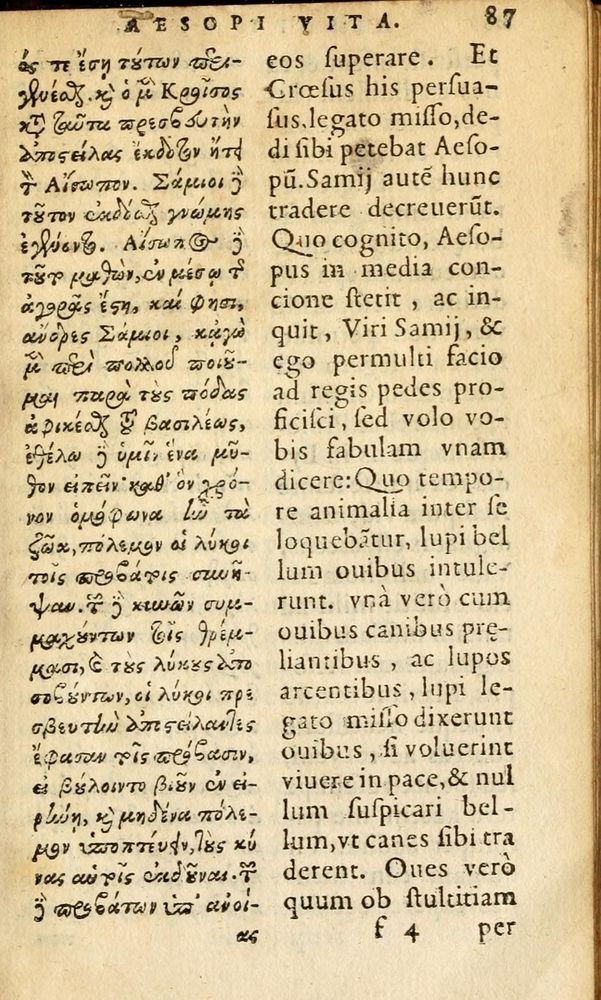 AESOPI VITA. 87
ός τε ἔσῃ τούτων περι-
γλυέας. καὶ ὁ μὲν Κροῖσος
κτ ταῦτα πρεσβευτὴν
ἀποστείλας ἔκδοτον ᾔτει
τὸν Αἴσωπον. Σάμιοι δὲ
τοῦτον ἐκδόσθαι γνώμης
ἐγένοντο. Αἴσωπος δὲ
τοῦτο μαθὼν, ἐν μέσῳ τῆς
ἀγορᾶς ἔστη, καί φησι,
ἄνδρες Σάμιοι, κἀγὼ
μὲν περὶ πολλοῦ ποιοῦ-
μαι παρὰ τοὺς πόδας
ἀφικέσθαι τοῦ βασιλέως,
ἐθέλω δὲ ὑμῖν ἕνα μῦ-
θον εἰπεῖν· καθ' ὃν χρό-
νον ὁμόφωνα ἦν τὰ
ζῶα, πόλεμον οἱ λύκοι
τοῖς προβάτοις συνῆ-
ψαν. τῶν δὲ κυνῶν συμ-
μαχούντων τοῖς θρέμ-
μασι, καὶ τοὺς λύκους ἀπο
σοβούντων, οἱ λύκοι πρε
σβευτὴν ἀποστείλαντες
ἔφασαν τοῖς προβάτοις,
εἰ βούλοιντο βιοῦν ἐν εἰ-
ρήνῃ, καὶ μηδένα πόλε-
μον ὑποπτεύειν, τοὺς κύ
νας αὐτοῖς ἐκδοῦναι. τῶν
δὲ προβάτων ὑπ' ἀνοί-
ας
eos superare. Et
Crœsus his persua-
sus, legato misso, de-
di sibi petebat Aeso-
pũ. Samij autẽ hunc
tradere decreuerũt.
Quo cognito, Aeso-
pus in media con-
cione stetit, ac in-
quit, Viri Samij, &
ego permulti facio
ad regis pedes pro-
ficisci, sed volo vo-
bis fabulam vnam
dicere: Quo tempo-
re animalia inter se
loquebãtur, lupi bel
lum ouibus intule-
runt. vnà verò cum
ouibus canibus prę-
liantibus, ac lupos
arcentibus, lupi le-
gato misso dixerunt
ouibus, si voluerint
viuere in pace, & nul
lum suspicari bel-
lum, vt canes sibi tra
derent. Oues verò
quum ob stultitiam
f 4 per